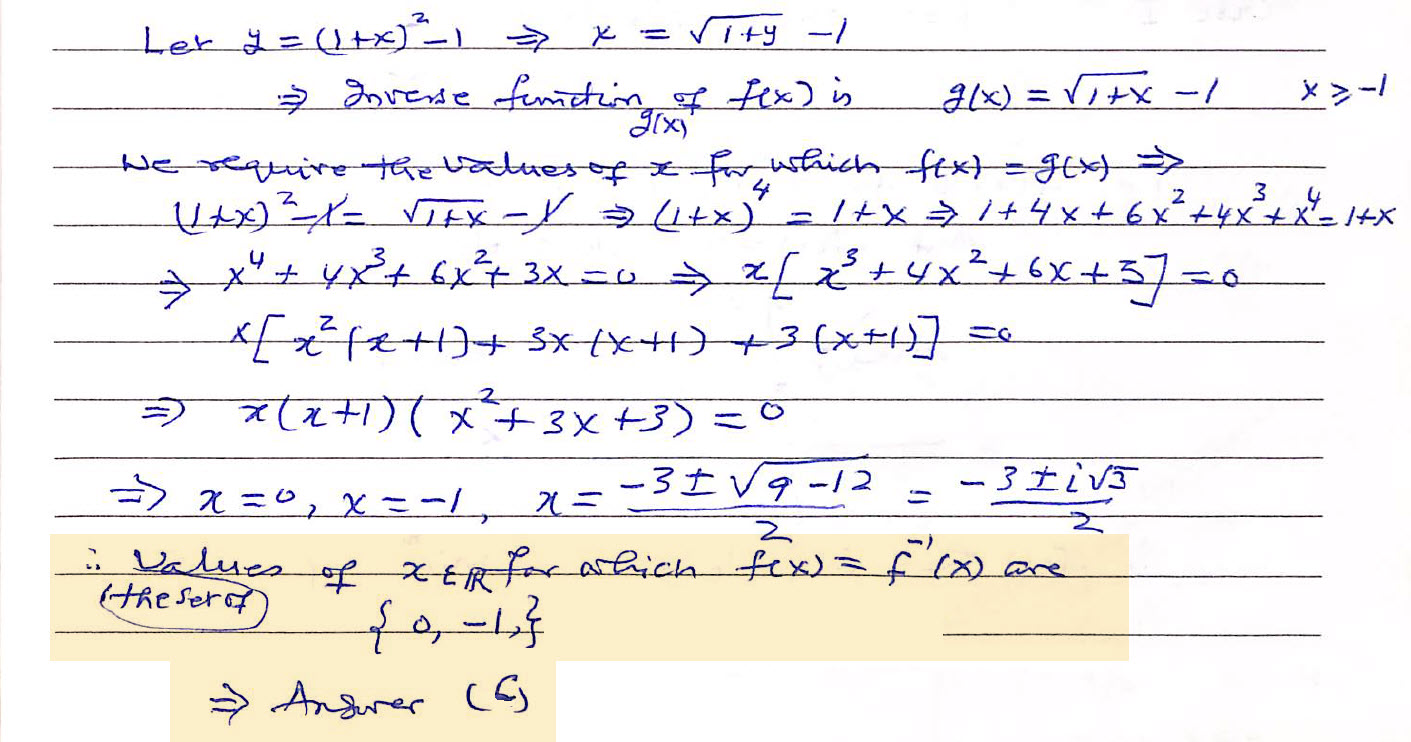 Let y = (1+x)² – 1 ⇒ x = √(1+y) – 1
⇒ Inverse function of f(x) is g(x) = √(1+x) – 1 x ≥ –1
g(x)
We require the values of x for which f(x) = g(x) ⇒
(1+x)² – 1 = √(1+x) – 1 ⇒ (1+x)⁴ = 1+x ⇒ 1+4x+6x²+4x³+x⁴ = 1+x
⇒ x⁴ + 4x³ + 6x² + 3x = 0 ⇒ x[x³ + 4x² + 6x + 3] = 0
x[x²(x+1) + 3x(x+1) + 3(x+1)] = 0
⇒ x(x+1)(x² + 3x + 3) = 0
⇒ x = 0, x = –1, x = (–3 ± √(9–12))/2 = (–3 ± i√3)/2
∴ Values of x ∈ ℝ for which f(x) = f⁻¹(x) are
(the set of)
{0, –1,}
⇒ Answer (C)